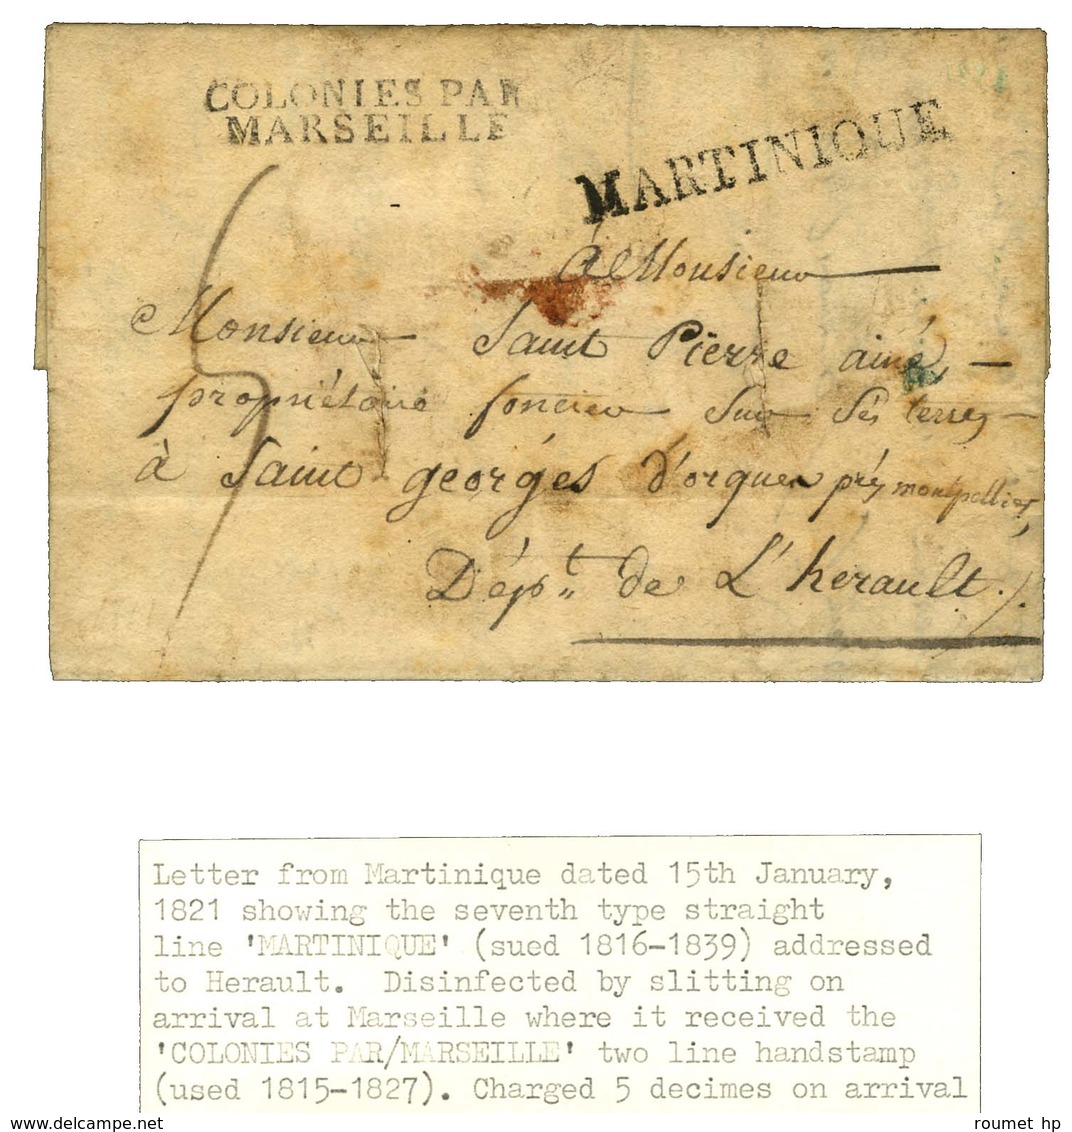 COLONIES PAR
MARSEILLE
MARTINIQUE
5
à Monsieur
Monsieur Saint Pierre ainé
propriétaire foncier Sur Ses terres
à Saint georges d'orques près montpellier,
Dépt. de L'herault
Letter from Martinique dated 15th January,
1821 showing the seventh type straight
line 'MARTINIQUE' (sued 1816-1839) addressed
to Herault. Disinfected by slitting on
arrival at Marseille where it received the
'COLONIES PAR/MARSEILLE' two line handstamp
(used 1815-1827). Charged 5 decimes on arrival
www.delcampe.net
roumet hp